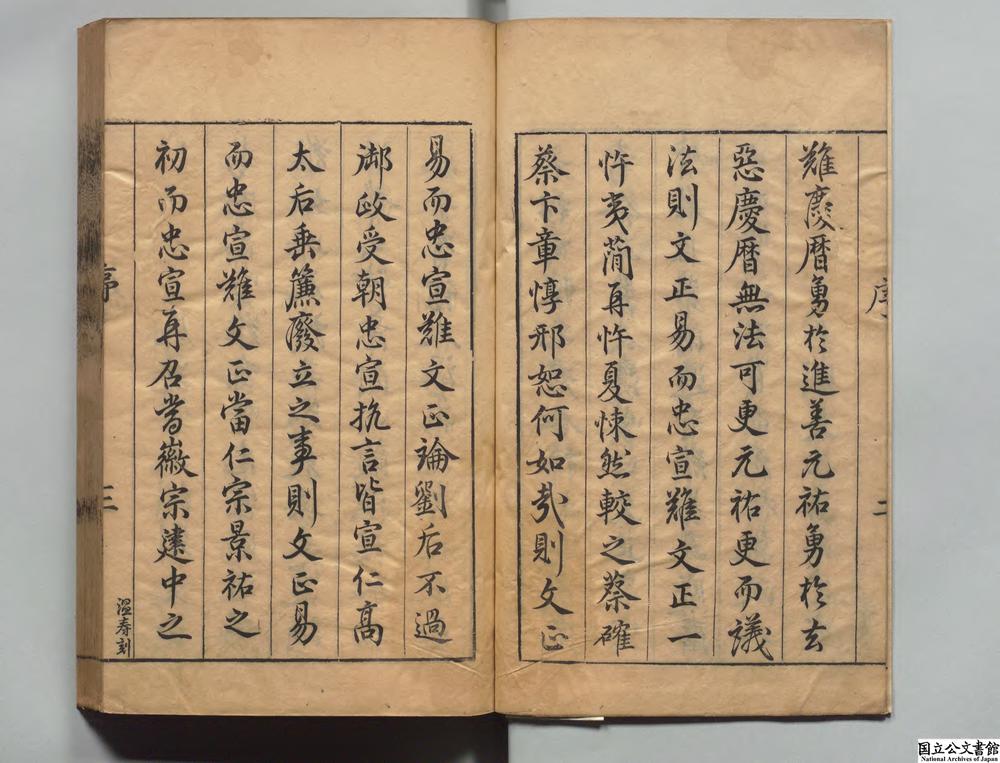 難慶曆勇於進善元祐勇於去
惡慶曆無法可更元祐更而議
法則文正易而忠宣難文正一
忤夷簡再忤夏悚然較之蔡確
蔡卞章惇邢恕何如哉則文正
易而忠宣難文正論劉后不過
御政受朝忠宣抗言皆宣仁高
太后垂簾廢立之事則文正易
而忠宣難文正當仁宗景祐之
初而忠宣再召當徽宗建中之
序
二
序
三
溫春刻
国立公文書館
National Archives of Japan